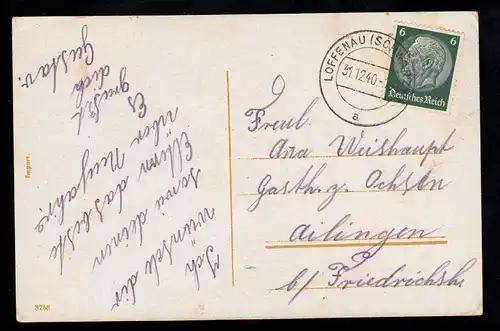 Ich
wünsche dir
sowie deinen
Eltern das beste
neben Neujahr.
Es
grüßt
dich
Gustav.
Import.
3758
LOFFENAU (SCH
31.12.40.-
a
6 6
Deutsches Reich
Freul.
Ana Weishaupt
Gasth. z. Ochsen
Ailingen
b/ Friedrichsh.